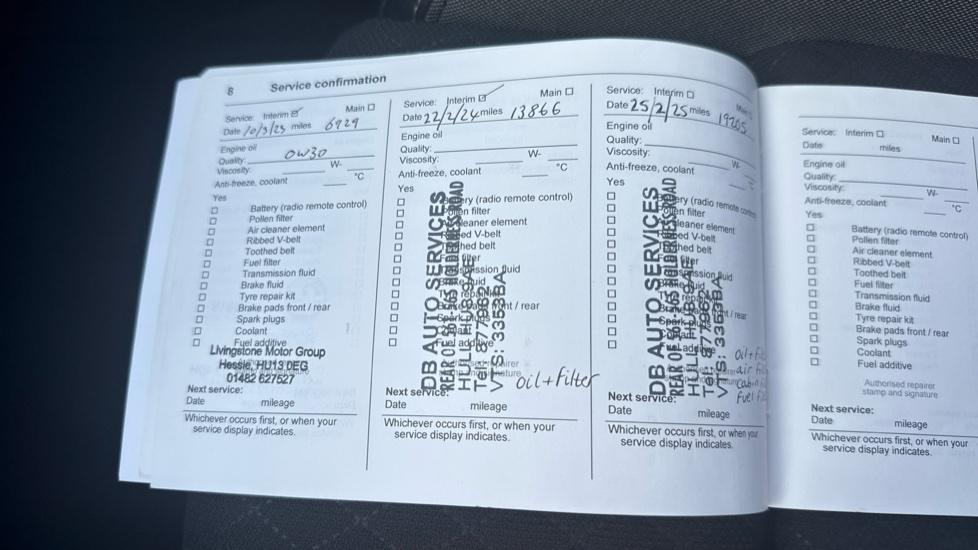 8 Service confirmation
Service: Interim ☑ Main ☐
Date 10/3/23 miles 6929
Engine oil
Quality: 0W30
Viscosity: W-
Anti-freeze, coolant °C
Yes
☐ Battery (radio remote control)
☐ Pollen filter
☐ Air cleaner element
☐ Ribbed V-belt
☐ Toothed belt
☐ Fuel filter
☐ Transmission fluid
☐ Brake fluid
☐ Tyre repair kit
☐ Brake pads front / rear
☐ Spark plugs
☐ Coolant
☐ Fuel additive
Livingstone Motor Group
Hessle, HU13 0EG
01482 627527
Next service:
Date mileage
Whichever occurs first, or when your
service display indicates.
Service: Interim ☑ Main ☐
Date 22/2/24 miles 13866
Engine oil
Quality:
Viscosity: W-
Anti-freeze, coolant °C
Yes
☐ ery (radio remote control)
☐ en filter
☐ leaner element
☐ ed V-belt
☐ hed belt
☐ filter
☐ ssion fluid
☐ fluid
☐ repair
☐ front / rear
☐ Spark plugs
☐
☐ Fuel additive
DB AUTO SERVICES
REAR OF HOLDERNESS ROAD
HULL
Tel:
VTS: 3353BA
oil + Filter
Next service:
Date mileage
Whichever occurs first, or when your
service display indicates.
Service: Interim ☐ Main
Date 25/2/25 miles 19205
Engine oil
Quality:
Viscosity: W-
Anti-freeze, coolant
Yes
☐ ery (radio remote
☐ en filter
☐ leaner element
☐ ed V-belt
☐ hed belt
☐ filter
☐ ssion fluid
☐
☐
☐ nt / rear
☐ Spark
☐
☐ Fuel
DB AUTO SERVICES
REAR OF HOLDERNESS ROAD
HULL
Tel:
VTS: 3353BA
oil +
air
Fuel
Next service:
Date mileage
Whichever occurs first, or when you
service display indicates.
Service: Interim ☐ Main ☐
Date miles
Engine oil
Quality:
Viscosity: W-
Anti-freeze, coolant °C
Yes
☐ Battery (radio remote control)
☐ Pollen filter
☐ Air cleaner element
☐ Ribbed V-belt
☐ Toothed belt
☐ Fuel filter
☐ Transmission fluid
☐ Brake fluid
☐ Tyre repair kit
☐ Brake pads front / rear
☐ Spark plugs
☐ Coolant
☐ Fuel additive
Authorised repairer
stamp and signature
Next service:
Date mileage
Whichever occurs first, or when your
service display indicates.